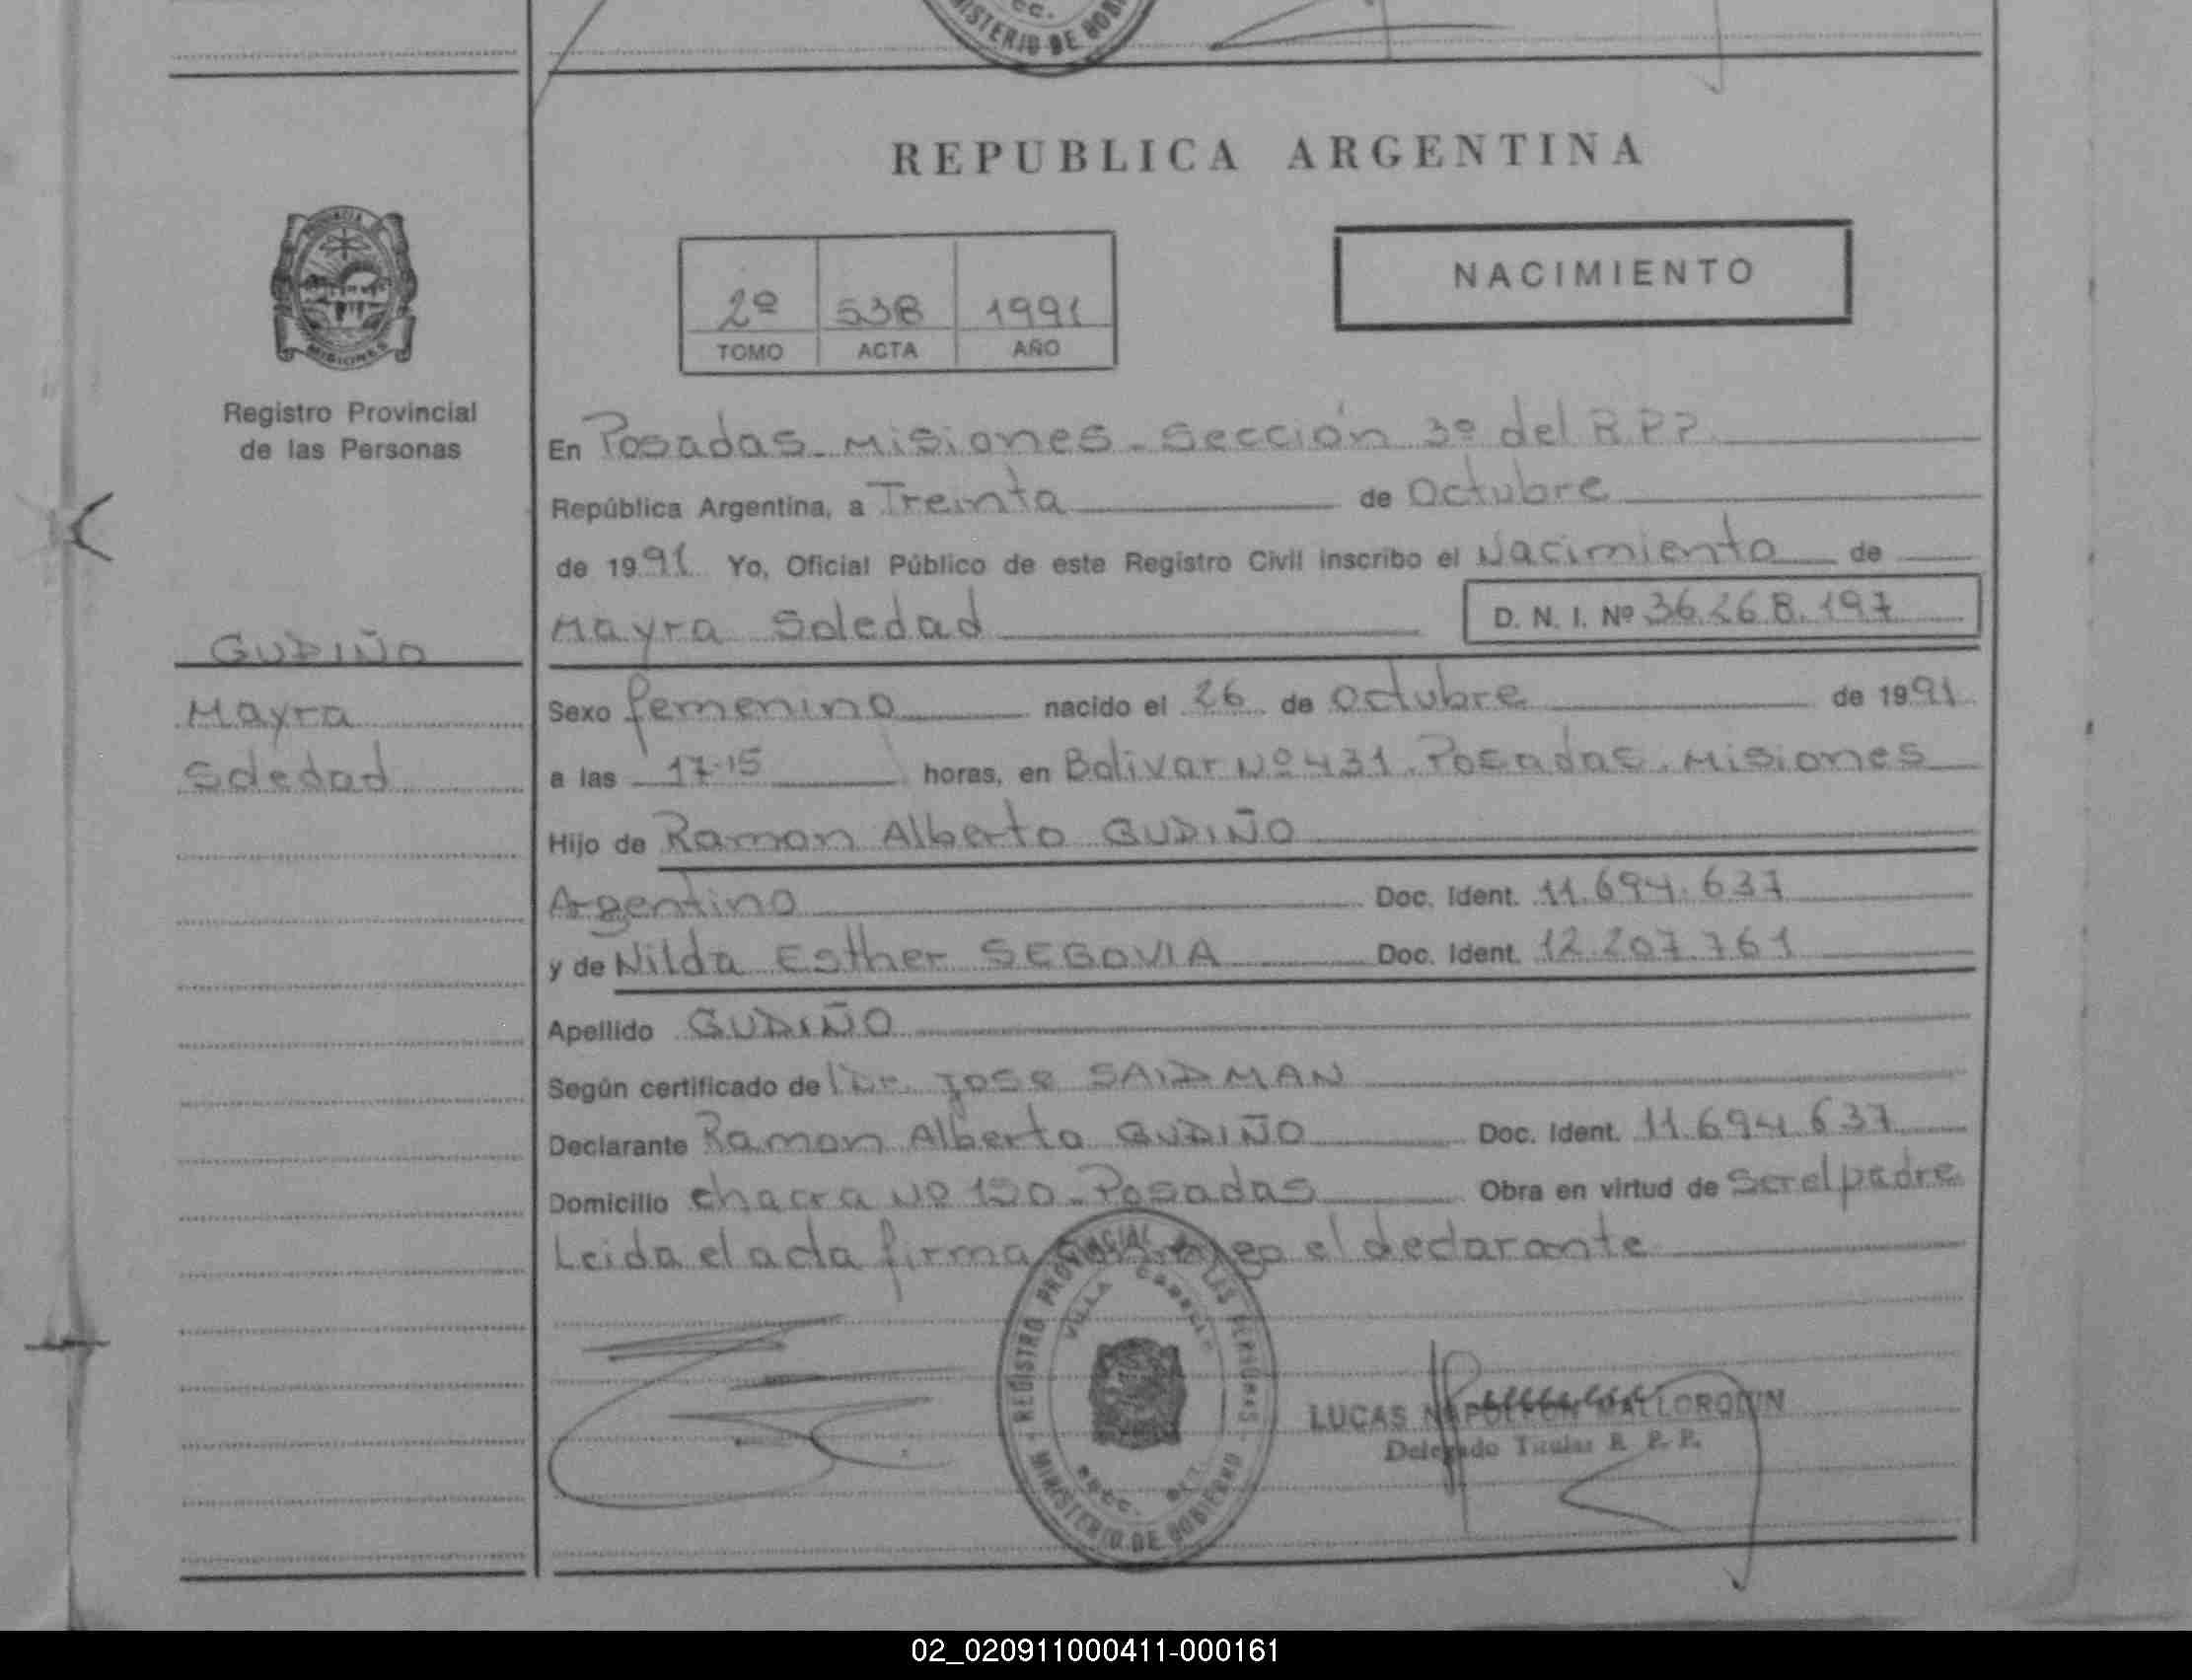 MINISTERIO DE GOB
REPUBLICA ARGENTINA
NACIMIENTO
2º 538 1991
TOMO ACTA AÑO
PROVINCIA
MISIONES
Registro Provincial
de las Personas
GUDIÑO
Mayra
Soledad
En Posadas - Misiones - Sección 3º del R.P.P.
República Argentina, a Treinta de Octubre
de 1991 Yo, Oficial Público de este Registro Civil inscribo el Nacimiento de
Mayra Soledad D. N. I. Nº 36.268.197
Sexo femenino nacido el 26 de octubre de 1991
a las 17.15 horas, en Bolivar Nº 431. Posadas. Misiones
Hijo de Ramon Alberto GUDIÑO
Argentino Doc. Ident. 11.694.637
y de Nilda Esther SEGOVIA Doc. Ident. 12.207.761
Apellido GUDIÑO
Según certificado de l Dr. Jose SAIDMAN
Declarante Ramon Alberto GUDIÑO Doc. Ident. 11.694.637
Domicilio chacra Nº 150 - Posadas Obra en virtud de Ser el padre
Leida el acta firma conmigo el declarante
REGISTRO PROVINCIAL DE LAS PERSONAS
VILLA CABELLO
MINISTERIO DE GOBIERNO
LUCAS NAPOLEON MALLORQUIN
Delegado Titular R. P. P.
02_020911000411-000161